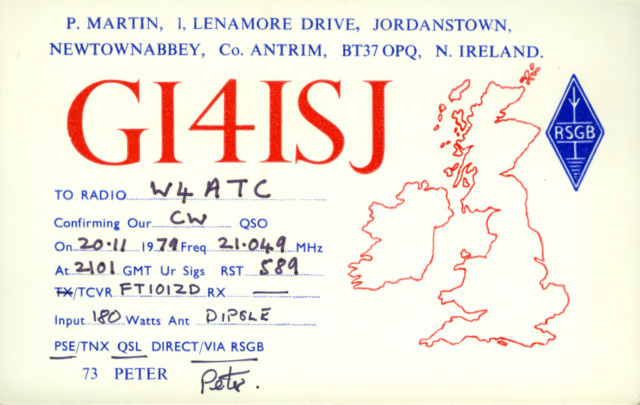 P. MARTIN, 1, LENAMORE DRIVE, JORDANSTOWN,
NEWTOWNABBEY, Co. ANTRIM, BT37 OPQ, N. IRELAND.
GI4ISJ
RSGB
TO RADIO W4ATC
Confirming Our CW QSO
On 20.11 1979 Freq 21.049 MHz
At 2101 GMT Ur Sigs RST 589
TX/TCVR FT101ZD RX —
Input 180 Watts Ant DIPOLE
PSE/TNX QSL DIRECT/VIA RSGB
73 PETER Peter.